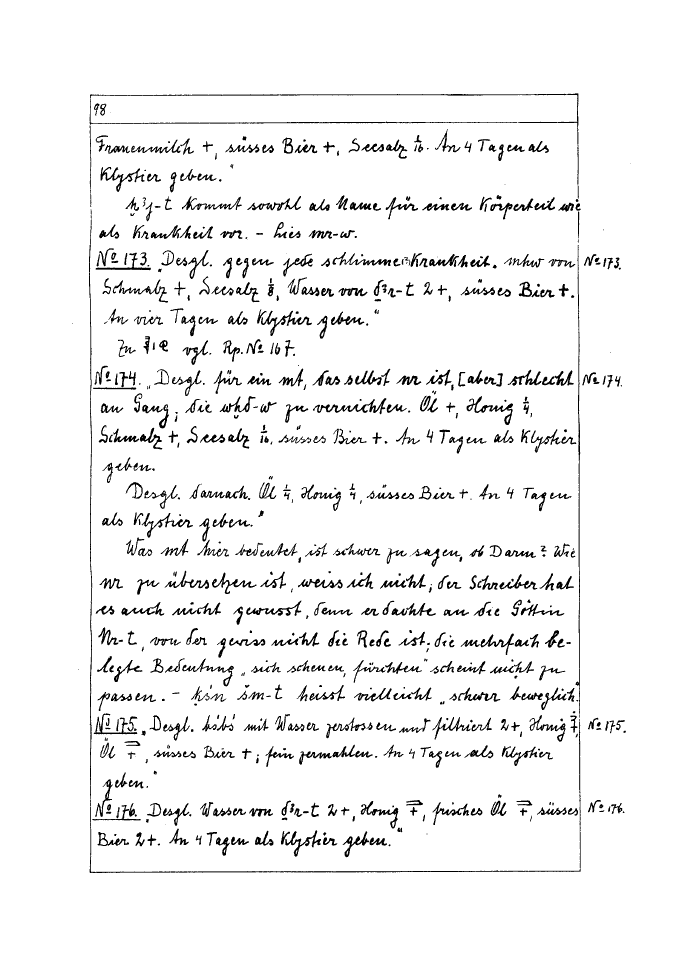 98
Frauenmilch +, süsses Bier +, Seesalz 1/16. An 4 Tagen als
Klystier geben."
ḥꜣj-t kommt sowohl als Name für einen Körperteil wie
als Krankheit vor. – lies mr-w.
No 173. „Desgl. gegen jede schlimme Krankheit. mhw von No 173.
Schmalz +, Seesalz 1/8, Wasser von ḏꜣr-t 2+, süsses Bier +.
An vier Tagen als Klystier geben."
Zu vgl. Rp. No 167.
No 174. „Desgl. für ein mt, das selbst nr ist, [aber] schlecht No 174.
an Gang; die wḥd-w zu vernichten. Öl +, Honig 1/4,
Schmalz +, Seesalz 1/16, süsses Bier +. An 4 Tagen als Klystier
geben.
Desgl. darnach. Öl 1/4, Honig 1/4, süsses Bier +. An 4 Tagen
als Klystier geben."
Was mt hier bedeutet, ist schwer zu sagen, ob Darm? Wie
nr zu übersetzen ist, weiss ich nicht; der Schreiber hat
es auch nicht gewusst, denn er dachte an die Göttin
Nr-t, von der gewiss nicht die Rede ist; die mehrfach be-
legte Bedeutung „sich scheuen, fürchten" scheint nicht zu
passen. – ḳsn šm-t heisst vielleicht „schwer beweglich."
No 175. „Desgl. mit Wasser zerstossen und filtriert 2+, Honig No 175.
Öl, süsses Bier +; fein zermahlen. An 4 Tagen als Klystier
geben."
No 176. „Desgl. Wasser von ḏꜣr-t 2+, Honig, frisches Öl, süsses No 176.
Bier 2+. An 4 Tagen als Klystier geben."